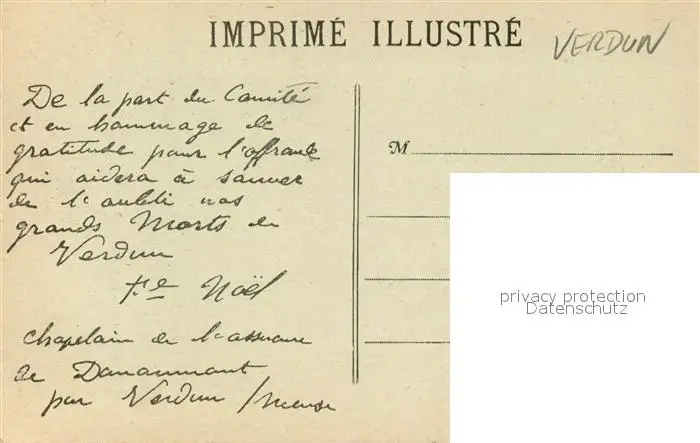 IMPRIMÉ ILLUSTRÉ
VERDUN
De la part du Comité
et en hommage de
gratitude pour l'offrande
qui aidera à sauver
de l'oubli nos
grands Morts de
Verdun
Noël
chapelain de l'ossuaire
de Douaumont
par Verdun / Meuse
M
privacy protection
Datenschutz